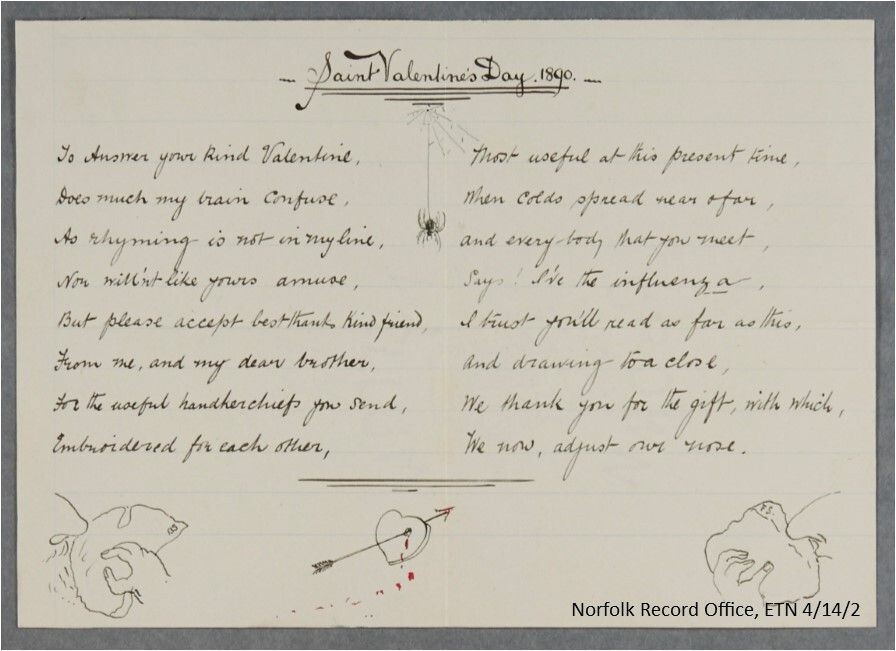 Saint Valentine's Day. 1890.
To Answer your kind Valentine,
Does much my brain confuse,
As rhyming is not in my line,
Nor will'nt like yours amuse,
But please accept best thanks kind friend,
From me, and my dear brother,
For the useful handkerchiefs you send,
Embroidered for each other,
Most useful at this present time,
When colds spread near & far,
and every body that you meet,
Says! I've the influenza,
I trust you'll read as far as this,
and drawing to a close,
We thank you for the gift, with which,
We now, adjust our nose.
F.S.
Norfolk Record Office, ETN 4/14/2